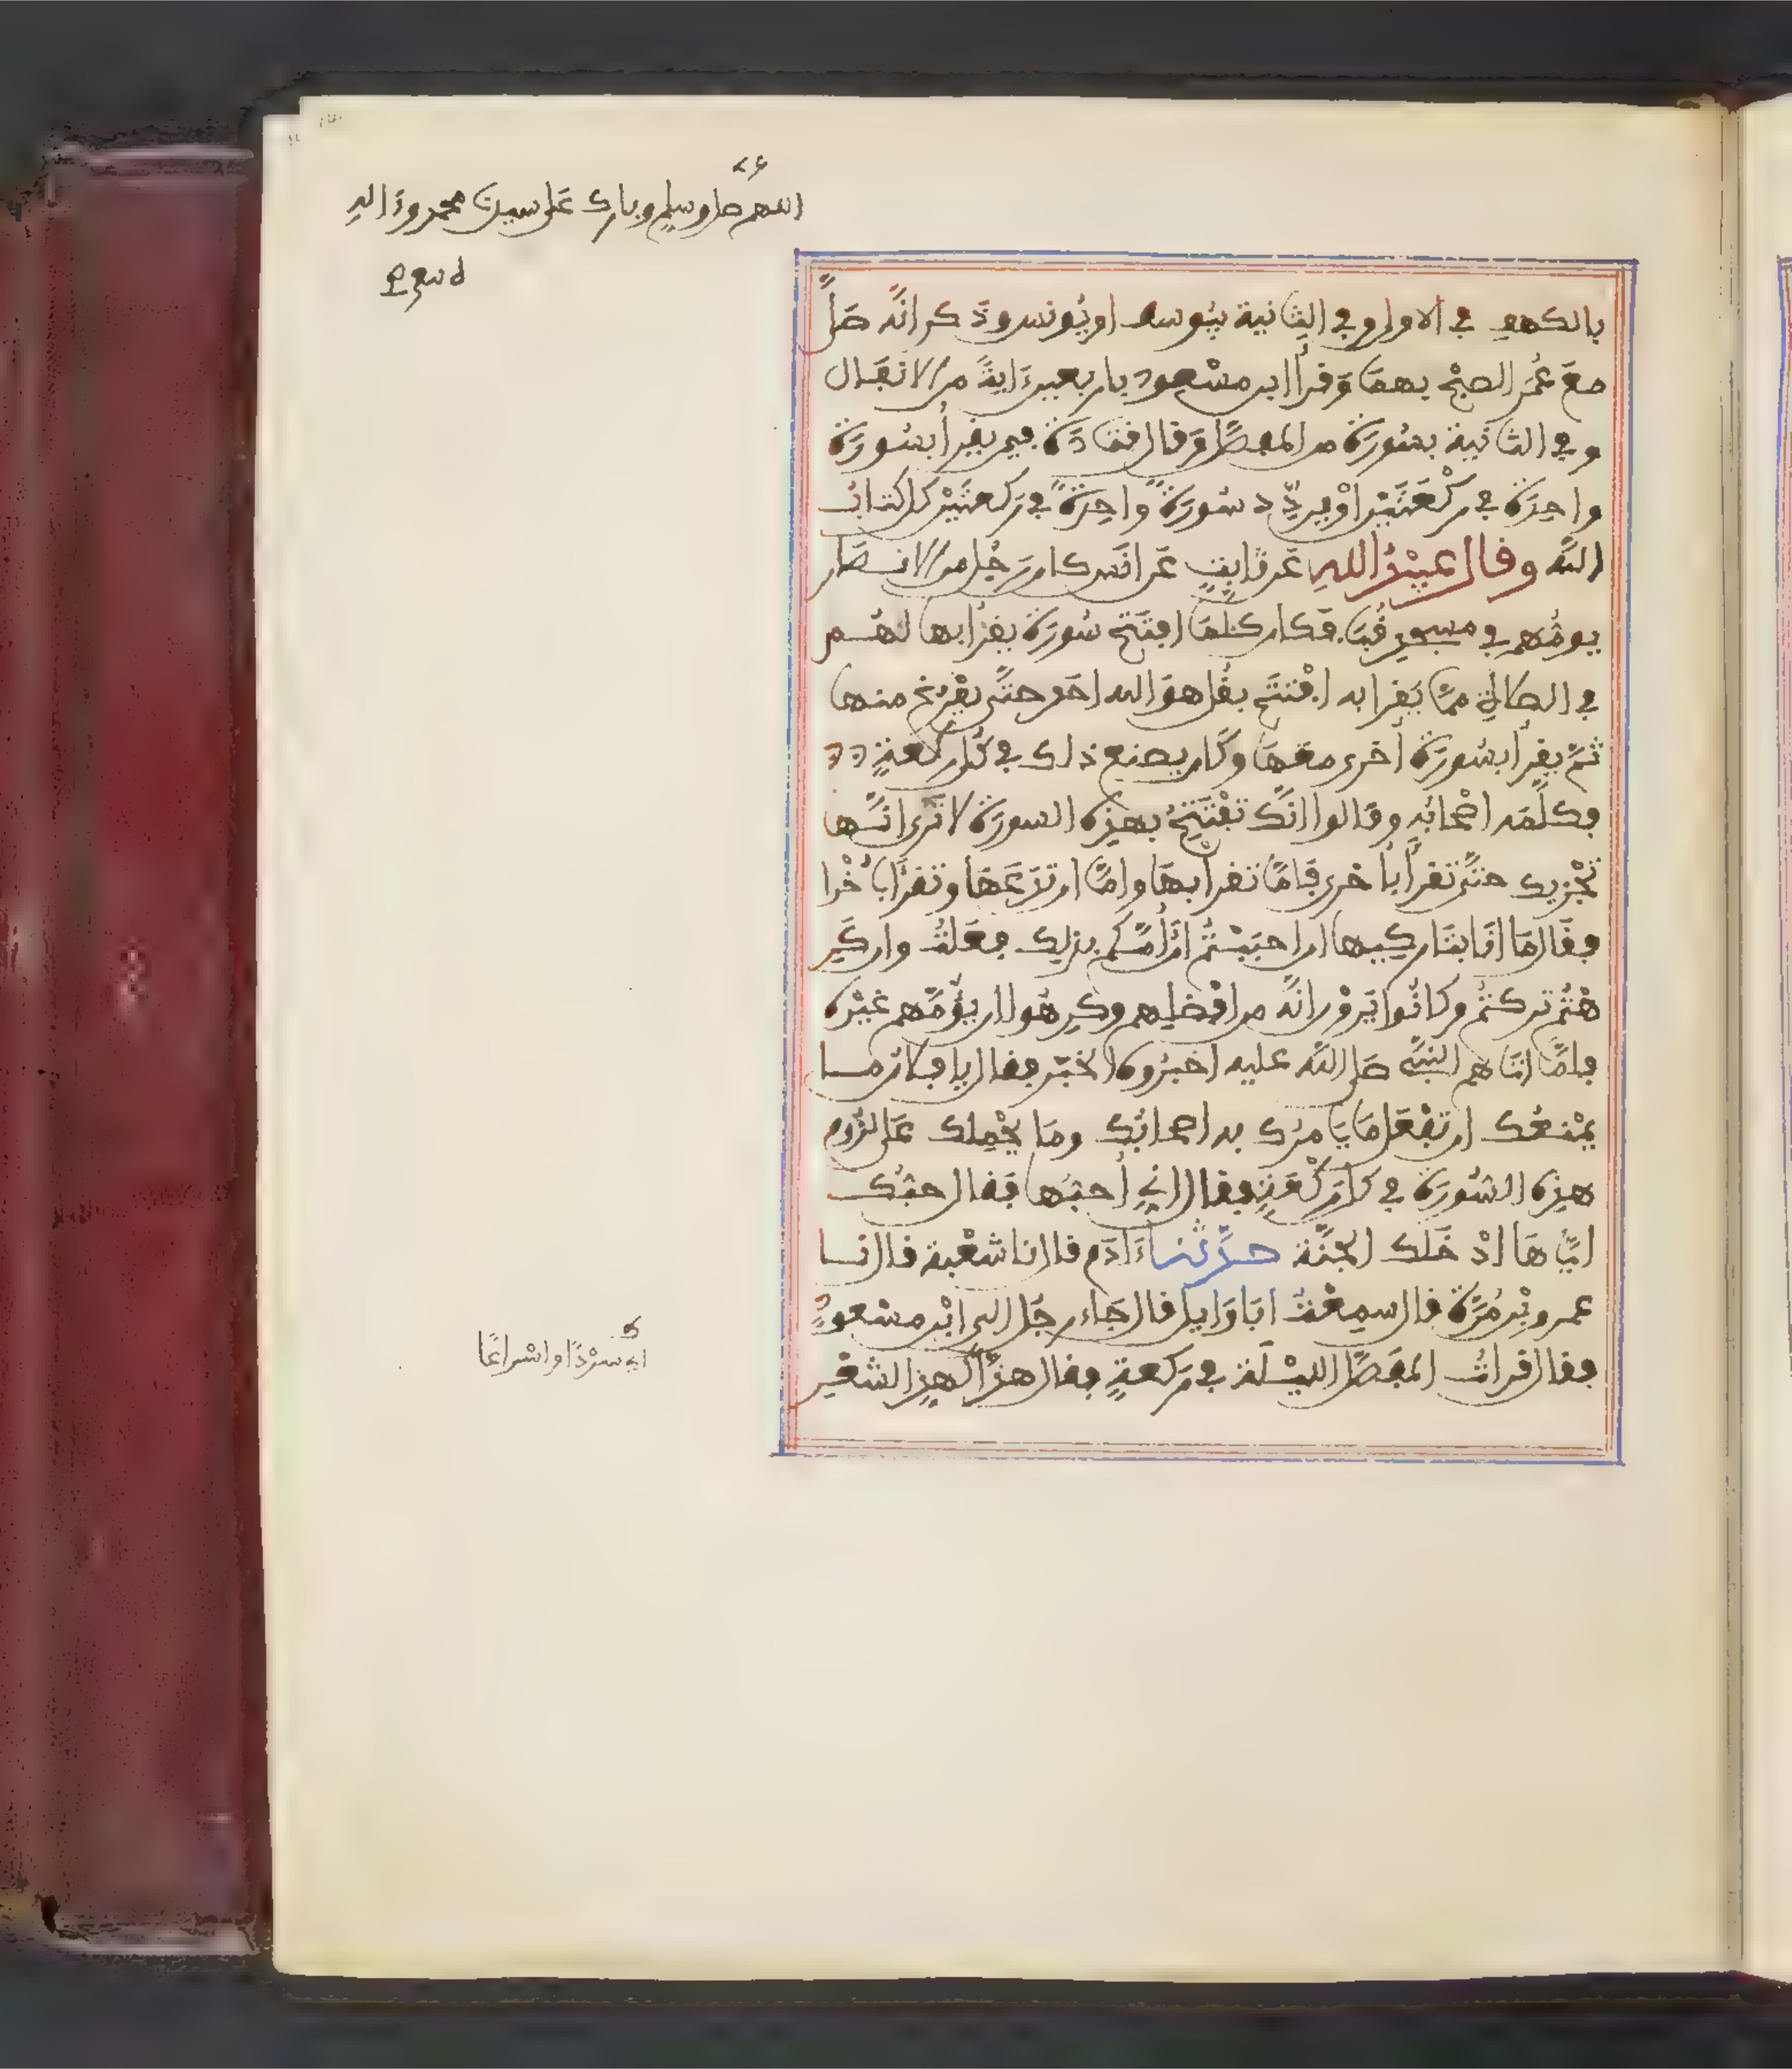 اللهم صل وسلم وبارك على سيدنا محمد وءاله
بالكهف في الاولى وفي الثانية بيوسف او يونس وذكر انه صلى
مع عمر الصبح بهما وقرأ ابن مسعود باربعين ءاية من الانفال
وفي الثانية بسورة من المفصل وقال قتادة فيمن يقرأ بسورة
واحدة في ركعتين او يردد سورة واحدة في ركعتين كل كتاب
الله وقال عبيد الله عن ثابت عن انس كان رجل من الانصار
يومهم في مسجد قبا فكان كلما افتتح سورة يقرأ بها لهم
في الصلاة مما يقرا به افتتح بقل هو الله احد حتى يفرغ منها
ثم يقرأ بسورة أخرى معها وكان يصنع ذلك في كل ركعة
فكلمه اصحابه وقالوا انك تفتتح بهذه السورة لا ترى انها
تجزيك حتى تقرأ بأخرى فاما تقرأ بها واما ان تدعها وتقرأ بأخرا
فقال ما انا بتاركيها ان احببتم ان أمكم بذلك فعلت وان كر
هتم تركتم وكانوا يرون انه من افضلهم وكرهوا ان يؤمهم غيره
فلما اتاهم النبي صلى الله عليه اخبروه الخبر فقال يا فلان ما
يمنعك ان تفعل ما يامرك به اصحابك وما يحملك على لزوم
هذه السورة في كل ركعة فقال اني أحبها فقال حبك
اياها ادخلك الجنة حدثنا ءادم قال نا شعبة قال نا
عمرو بن مرة قال سمعت ابا وايل قال جاء رجل الى ابن مسعود
فقال قرات المفصل الليلة في ركعة فقال هذّا كهذ الشعر
اي سردا واسراعا